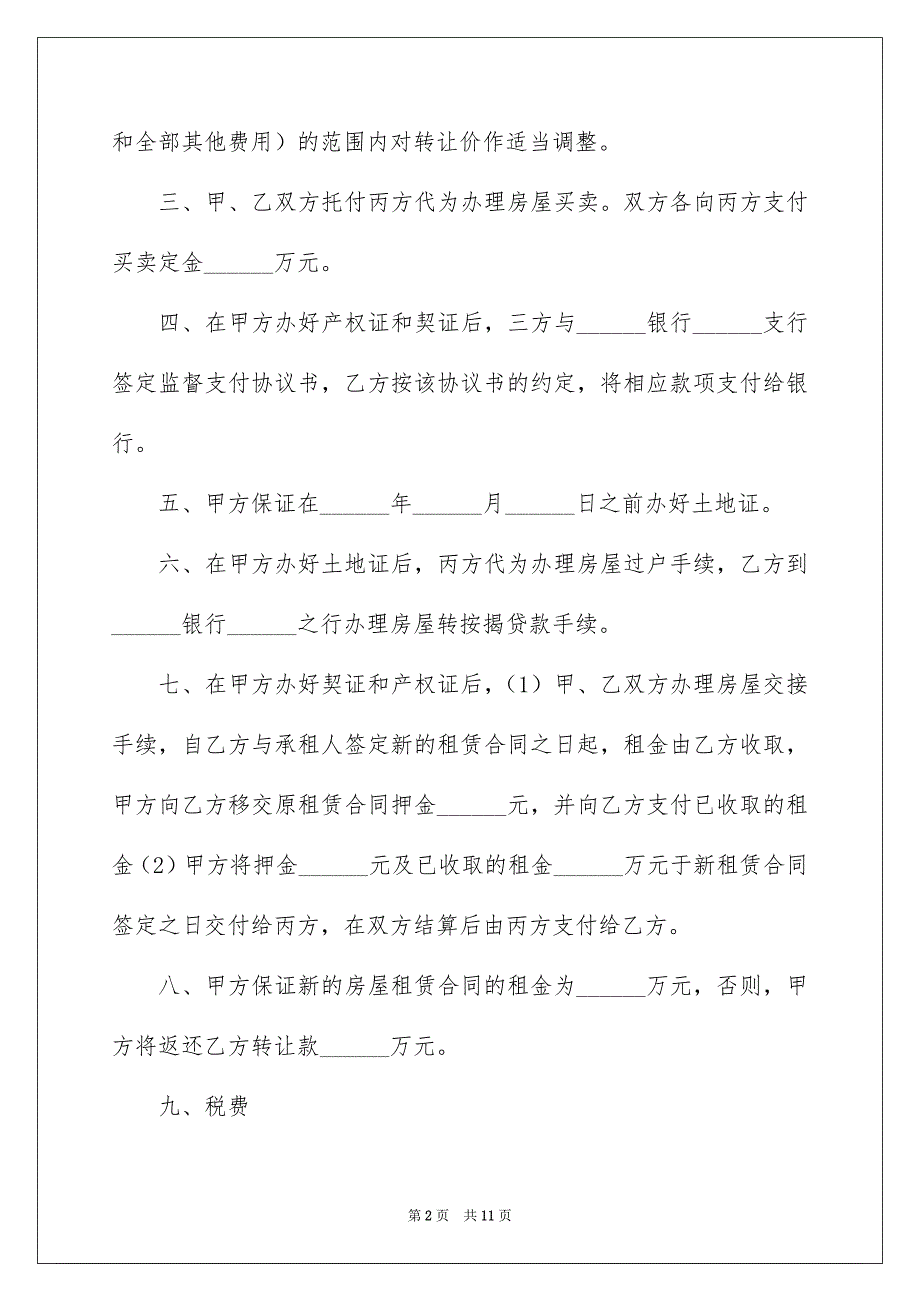 和全部其他费用）的范围内对转让价作适当调整。
三、甲、乙双方托付丙方代为办理房屋买卖。双方各向丙方支付
买卖定金______万元。
四、在甲方办好产权证和契证后，三方与______银行______支行
签定监督支付协议书，乙方按该协议书的约定，将相应款项支付给银
行。
五、甲方保证在______年______月______日之前办好土地证。
六、在甲方办好土地证后，丙方代为办理房屋过户手续，乙方到
______银行______之行办理房屋转按揭贷款手续。
七、在甲方办好契证和产权证后，（1）甲、乙双方办理房屋交接
手续，自乙方与承租人签定新的租赁合同之日起，租金由乙方收取，
甲方向乙方移交原租赁合同押金______元，并向乙方支付已收取的租
金（2）甲方将押金______元及已收取的租金______万元于新租赁合同
签定之日交付给丙方，在双方结算后由丙方支付给乙方。
八、甲方保证新的房屋租赁合同的租金为______万元，否则，甲
方将返还乙方转让款______万元。
九、税费
第 2 页 共 11 页